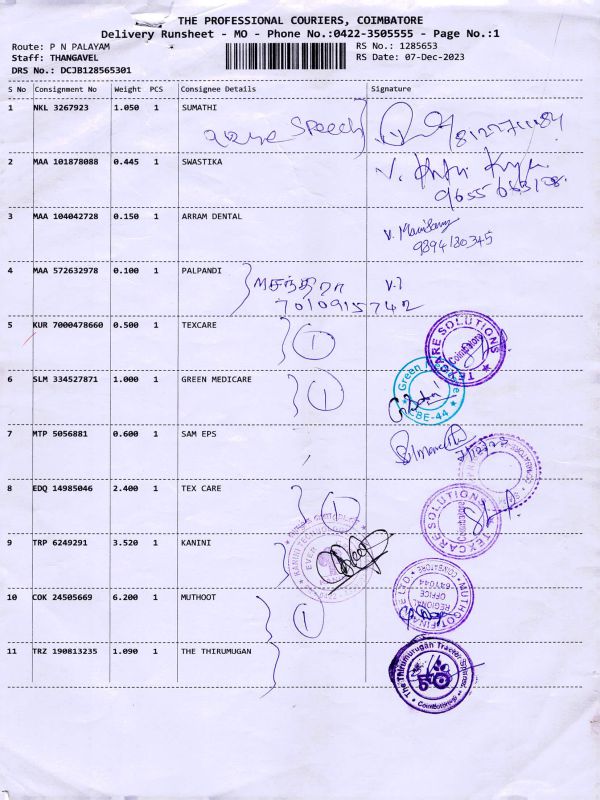 THE PROFESSIONAL COURIERS, COIMBATORE
Delivery Runsheet - MO - Phone No.:0422-3505555 - Page No.:1
Route: P N PALAYAM
Staff: THANGAVEL
DRS No.: DCJB128565301
RS No.: 1285653
RS Date: 07-Dec-2023
S No Consignment No Weight PCS Consignee Details Signature
1 NKL 3267923 1.050 1 SUMATHI
Speech
2 MAA 101878088 0.445 1 SWASTIKA
3 MAA 104042728 0.150 1 ARRAM DENTAL
9894180345
4 MAA 572632978 0.100 1 PALPANDI
7010915742
5 KUR 7000478660 0.500 1 TEXCARE
1
TEXCARE SOLUTIONS
Coimbatore
6 SLM 334527871 1.000 1 GREEN MEDICARE
1
Green
CBE-44
7 MTP 5056881 0.600 1 SAM EPS
8 EDQ 14985046 2.400 1 TEX CARE
1
TEXCARE SOLUTIONS
Coimbatore
9 TRP 6249291 3.520 1 KANINI
10 COK 24505669 6.200 1 MUTHOOT
1
MUTHOOT FINANCE LTD.
REGIONAL
OFFICE
641044
11 TRZ 190813235 1.090 1 THE THIRUMUGAN
The Thirumurugan Tractor Spares
Coimbatore